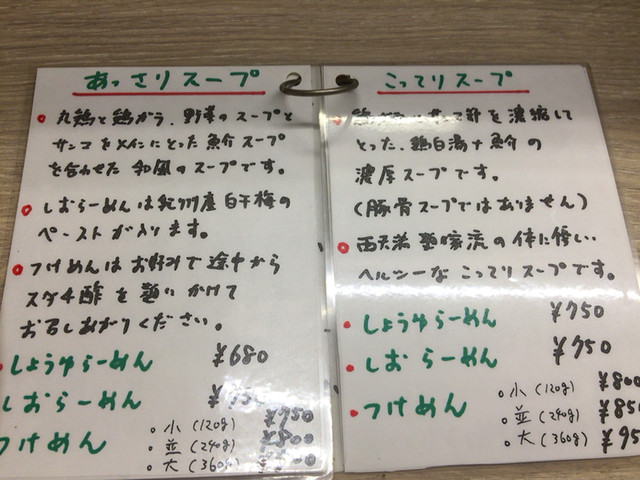 あっさりスープ
• 丸鶏と鶏がら、野菜のスープと
サンコをメインにとった魚介スープ
を合わせた 和風のスープです。
• しおらーめんは紀州産白干梅の
ペーストが入ります。
• つけめんはお好みで途中から
スダチ酢を かけて
お召しあがりください。
しょうゆらーめん ¥680
しおらーめん
つけめん
。小(120g) ¥750
。並(240g) ¥800
。大(360g)
こってりスープ
を濃縮して
とった、鶏白湯+魚介の
濃厚スープです。
(豚骨スープではありません)
• 西天満 流の体に優しい
ヘルシーなこってりスープです。
• しょうゆらーめん ¥750
• しおらーめん ¥750
• つけめん
。小(120g) ¥800
。並(240g) ¥85
。大(360g) ¥95